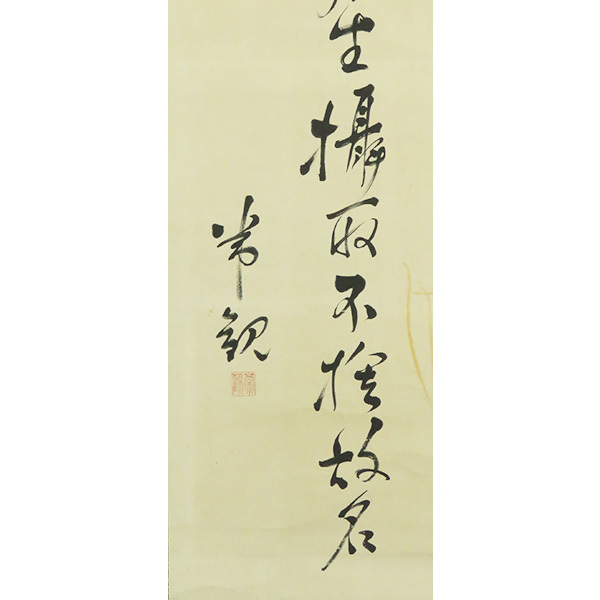 生攝取不捨故名
常観